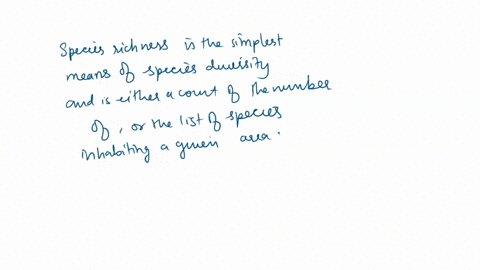 Species richness is the simplest
means of species diversity
and is either a count of the number
of, or the list of species
inhabiting a given area.